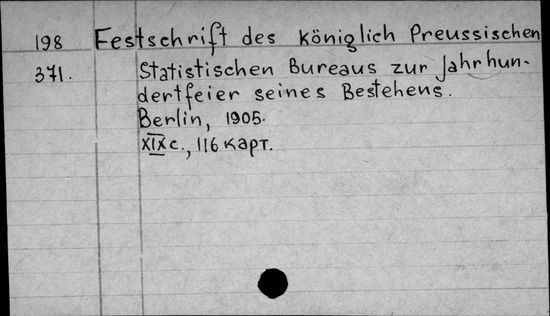 198 Festschrift des königlich Preussischen
371. Statistischen Bureaus zur Jahrhun-
dertfeier seines Bestehens.
Berlin, 1905.
XIX c., 116 карт.